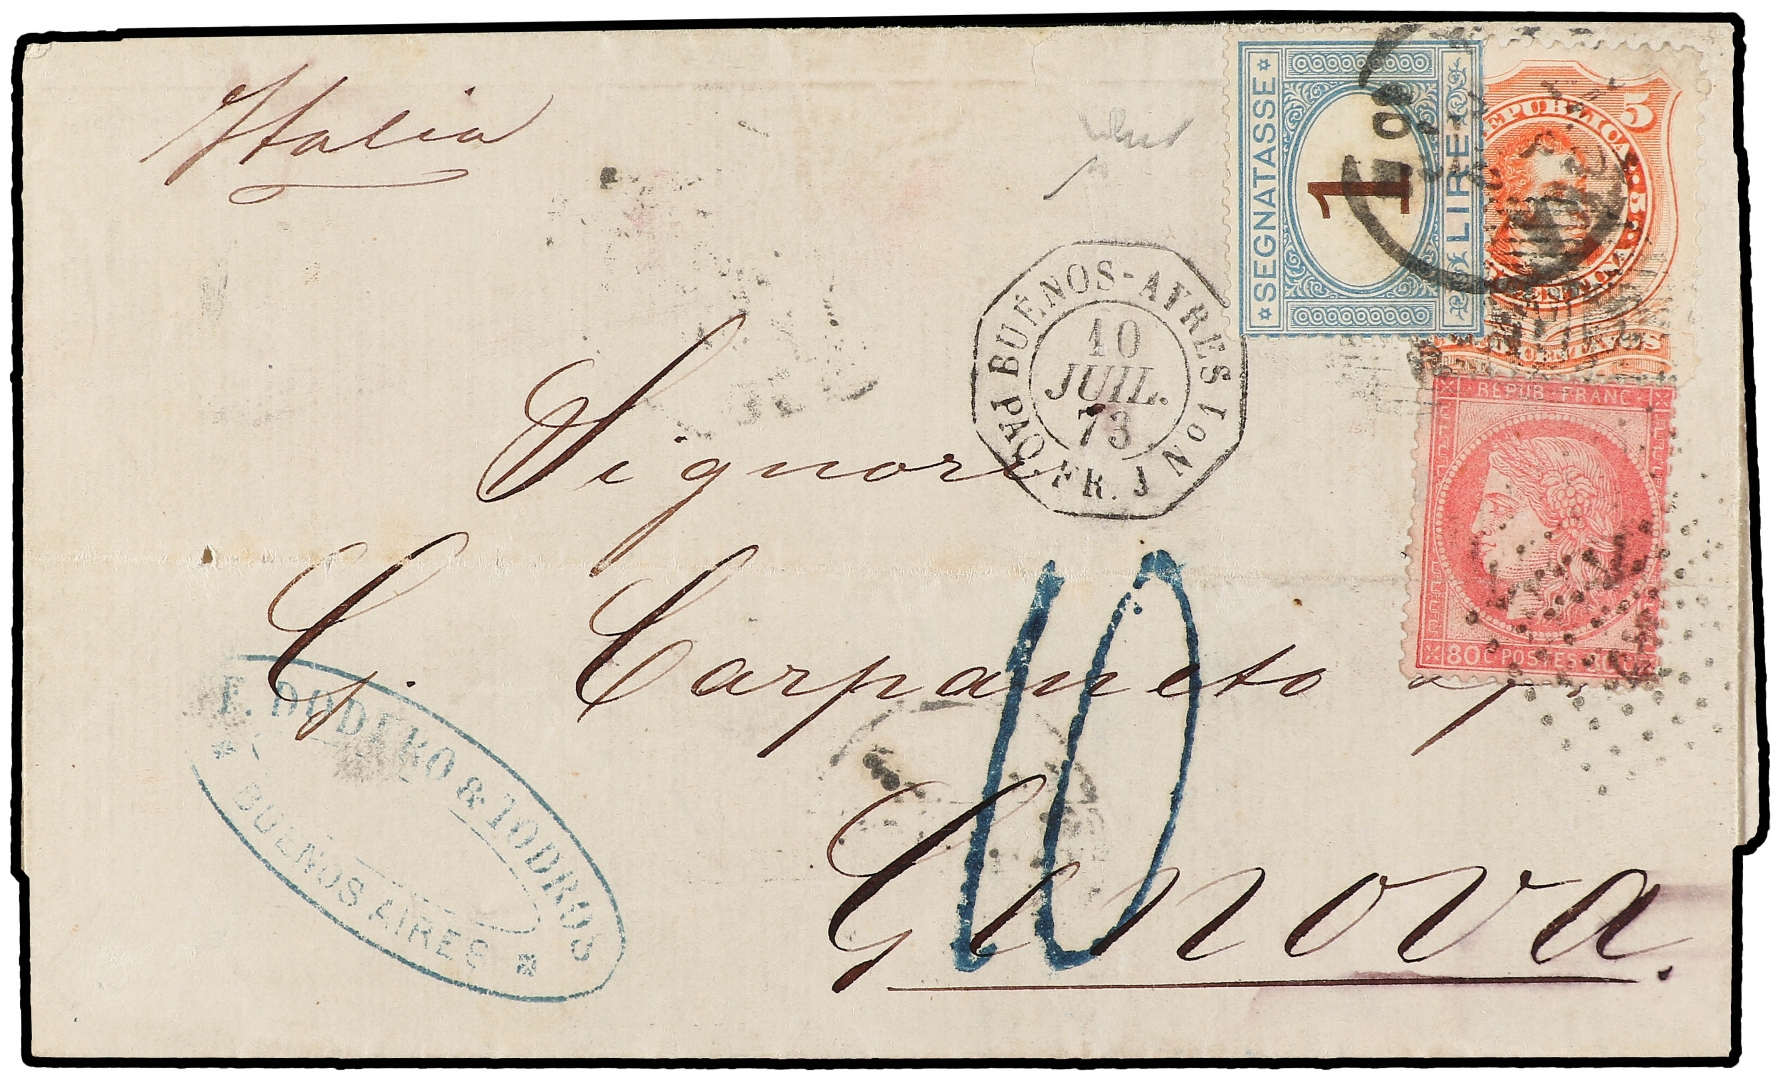 Italia
SEGNATASSE
1
LIRE
REPUBLICA
5
REPUB. FRANC.
80c POSTES
BUÉNOS-AYRES
10
JUIL.
73
PAQ. FR. J No 1
Signori
G. Carpaneto
10
Genova.
E. DODERO & IODROS
BUENOS AIRES